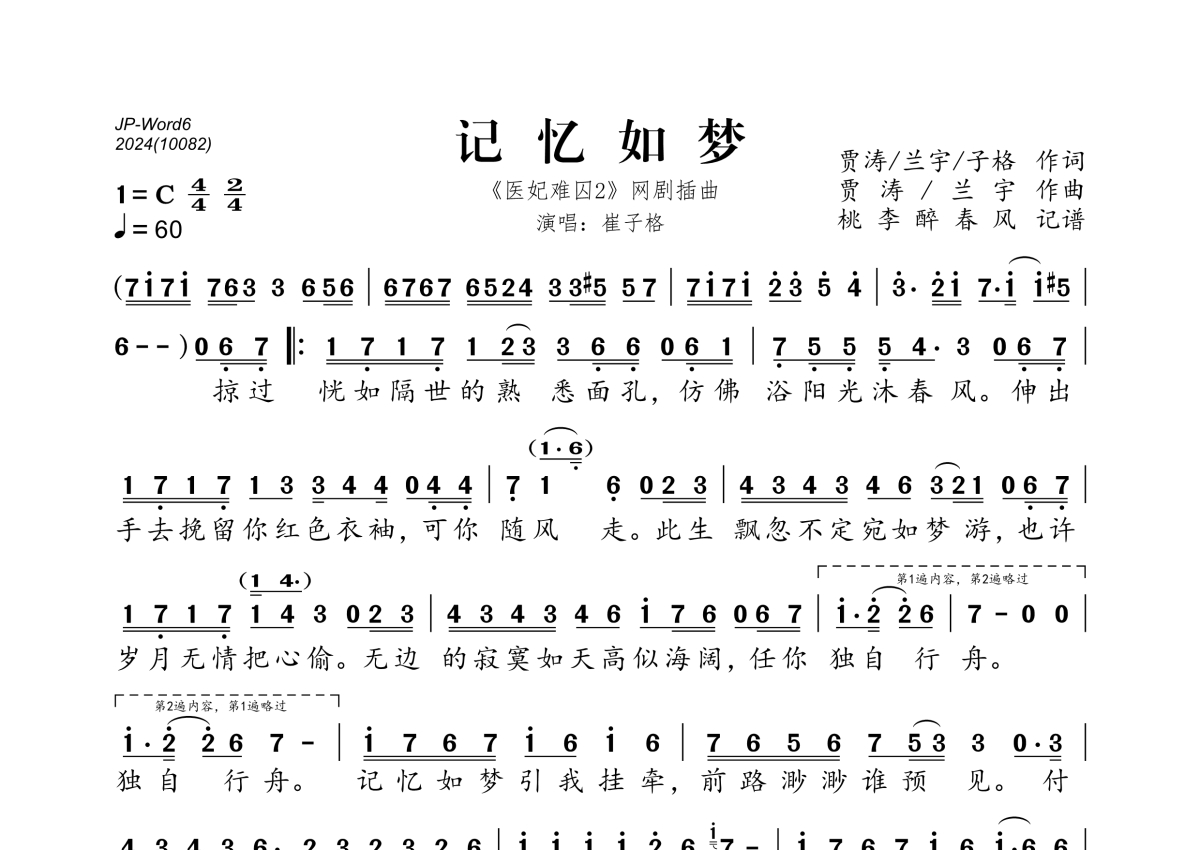 JP-Word6
2024(10082)
记忆如梦
《医妃难囚2》网剧插曲
演唱：崔子格
贾涛/兰宇/子格 作词
贾涛/兰宇 作曲
桃李醉春风 记谱
1=C 4/4 2/4
♩=60
(7i7i 763 3 656 | 6767 6524 33#5 57 | 7i7i 23 5 4 | 3· 2i 7·i i#5
6-- )0 6 7 ‖: 1 7 1 7 1 23 3 6 6 0 6 1 | 7 5 5 5 4· 3 0 6 7 |
掠过 恍如隔世的熟 悉面孔，仿佛 浴阳光沐春 风。伸出
(1·6)
1 7 1 7 1 3 3 4 4 0 4 4 | 7 1 6 0 2 3 | 4 3 4 3 4 6 3 2 1 0 6 7 |
手去挽留你红色衣袖，可你 随风 走。此生 飘忽不定宛如梦 游，也许
(1 4·)
第1遍内容，第2遍略过
1 7 1 7 1 4 3 0 2 3 | 4 3 4 3 4 6 i 7 6 0 6 7 | i·2 2 6 | 7 - 0 0
岁月无情把心偷。无边 的寂寞如天高似海阔，任你 独自 行舟。
第2遍内容，第1遍略过
i·2 2 6 7 - | i 7 6 7 i 6 i 6 | 7 6 5 6 7 5 3 3 0·3 |
独自 行舟。 记忆如梦引我挂牵，前路渺渺谁预 见。付
4 3 4 3 6· 2 3 2 3 2 6 | i i i i 2 6 i7 - | i 7 6 7 i 6 i·6 6 |